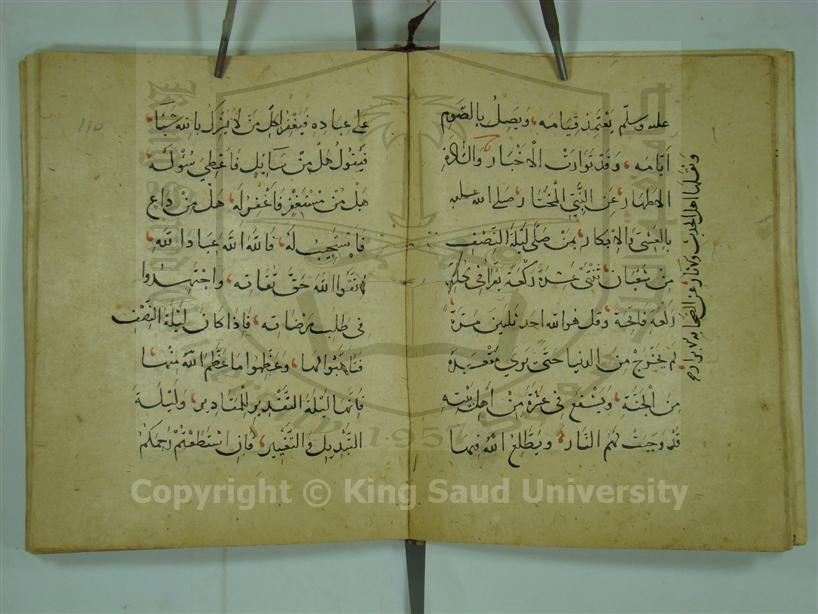 عليه وسلم يعتمد قيامه، ويصل بالصوم
أيامه، وقد تواترت الاخبار
الاطهار، عن النبي المختار، صلى الله عليه
بالعشي والابكار، من صلى ليلة النصف
من شعبان ثنتي عشرة ركعة يقرأ في كل
ركعة فاتحة، وقل هو الله احد ثلثين مرة
لم يخرج من الدنيا حتى يرى مقعده
من الجنة، ويشفع في عشرة من اهل بيته
قد وجبت لهم النار، ويطلع الله فيها
على عباده فيغفر لكل من لا يشرك بالله شيئا،
فيقول هل من سائل فاعطي سؤله،
هل من مستغفر فأغفر له، هل من داع
فاستجيب له، فالله الله عباد الله،
اتقوا الله حق تقاته، واجتهدوا
في طلب مرضاته، فاذا كان ليلة النصف
فتأهبوا لها، وعظموا ما عظم الله منها،
فإنها ليلة التقدير للمقادير، وليلة
التبديل والتغيير، فإن استطعتم رحمكم
110
Copyright © King Saud University
195